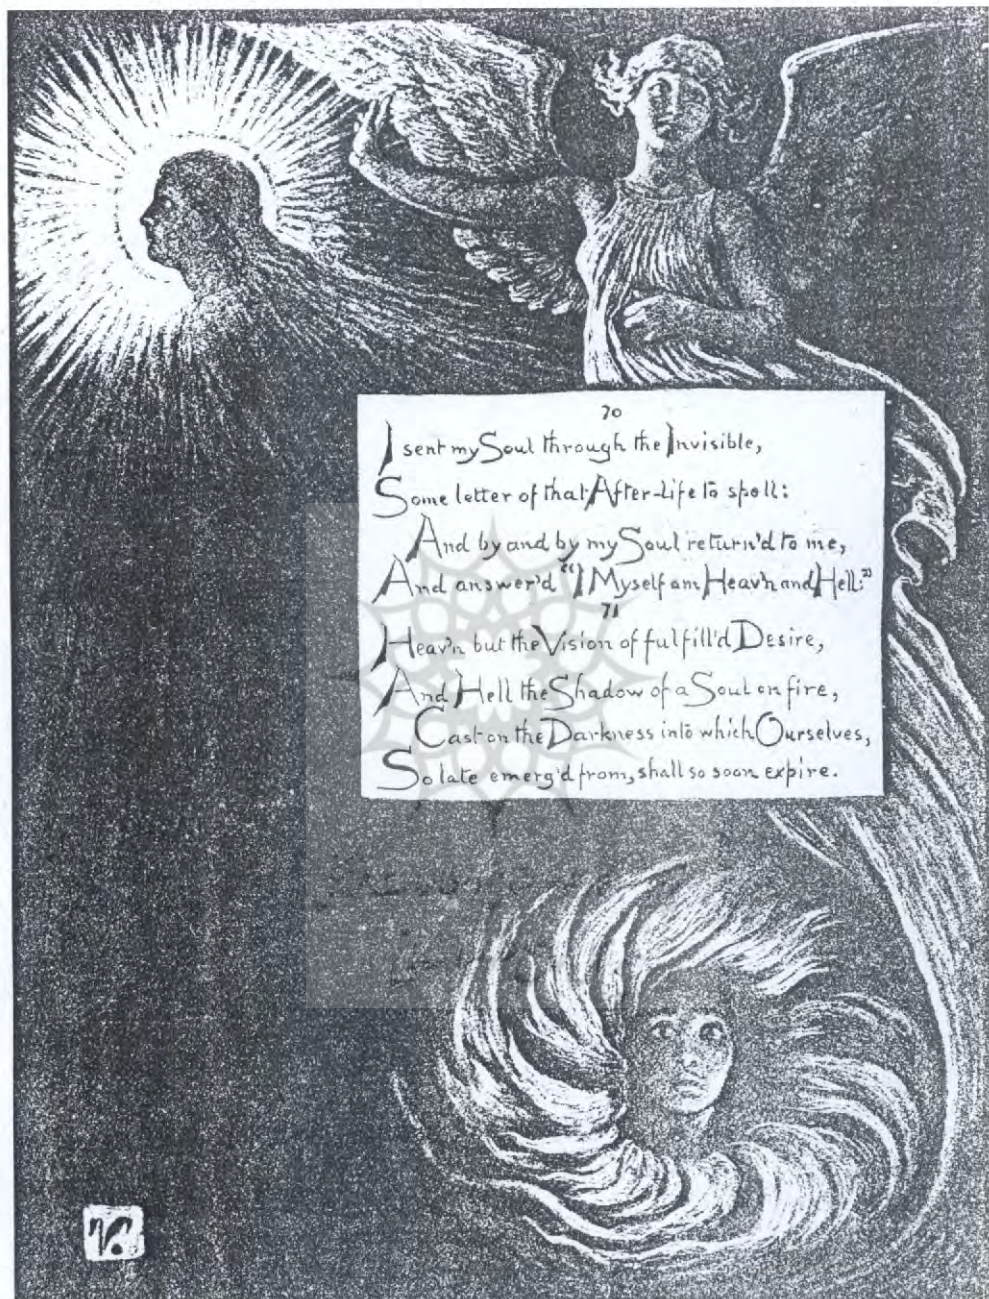 70
I sent my Soul through the Invisible,
Some letter of that After-Life to spell:
And by and by my Soul return'd to me,
And answer'd "I Myself am Heav'n and Hell:"
71
Heav'n but the Vision of fulfill'd Desire,
And Hell the Shadow of a Soul on fire,
Cast on the Darkness into which Ourselves,
So late emerg'd from, shall so soon expire.